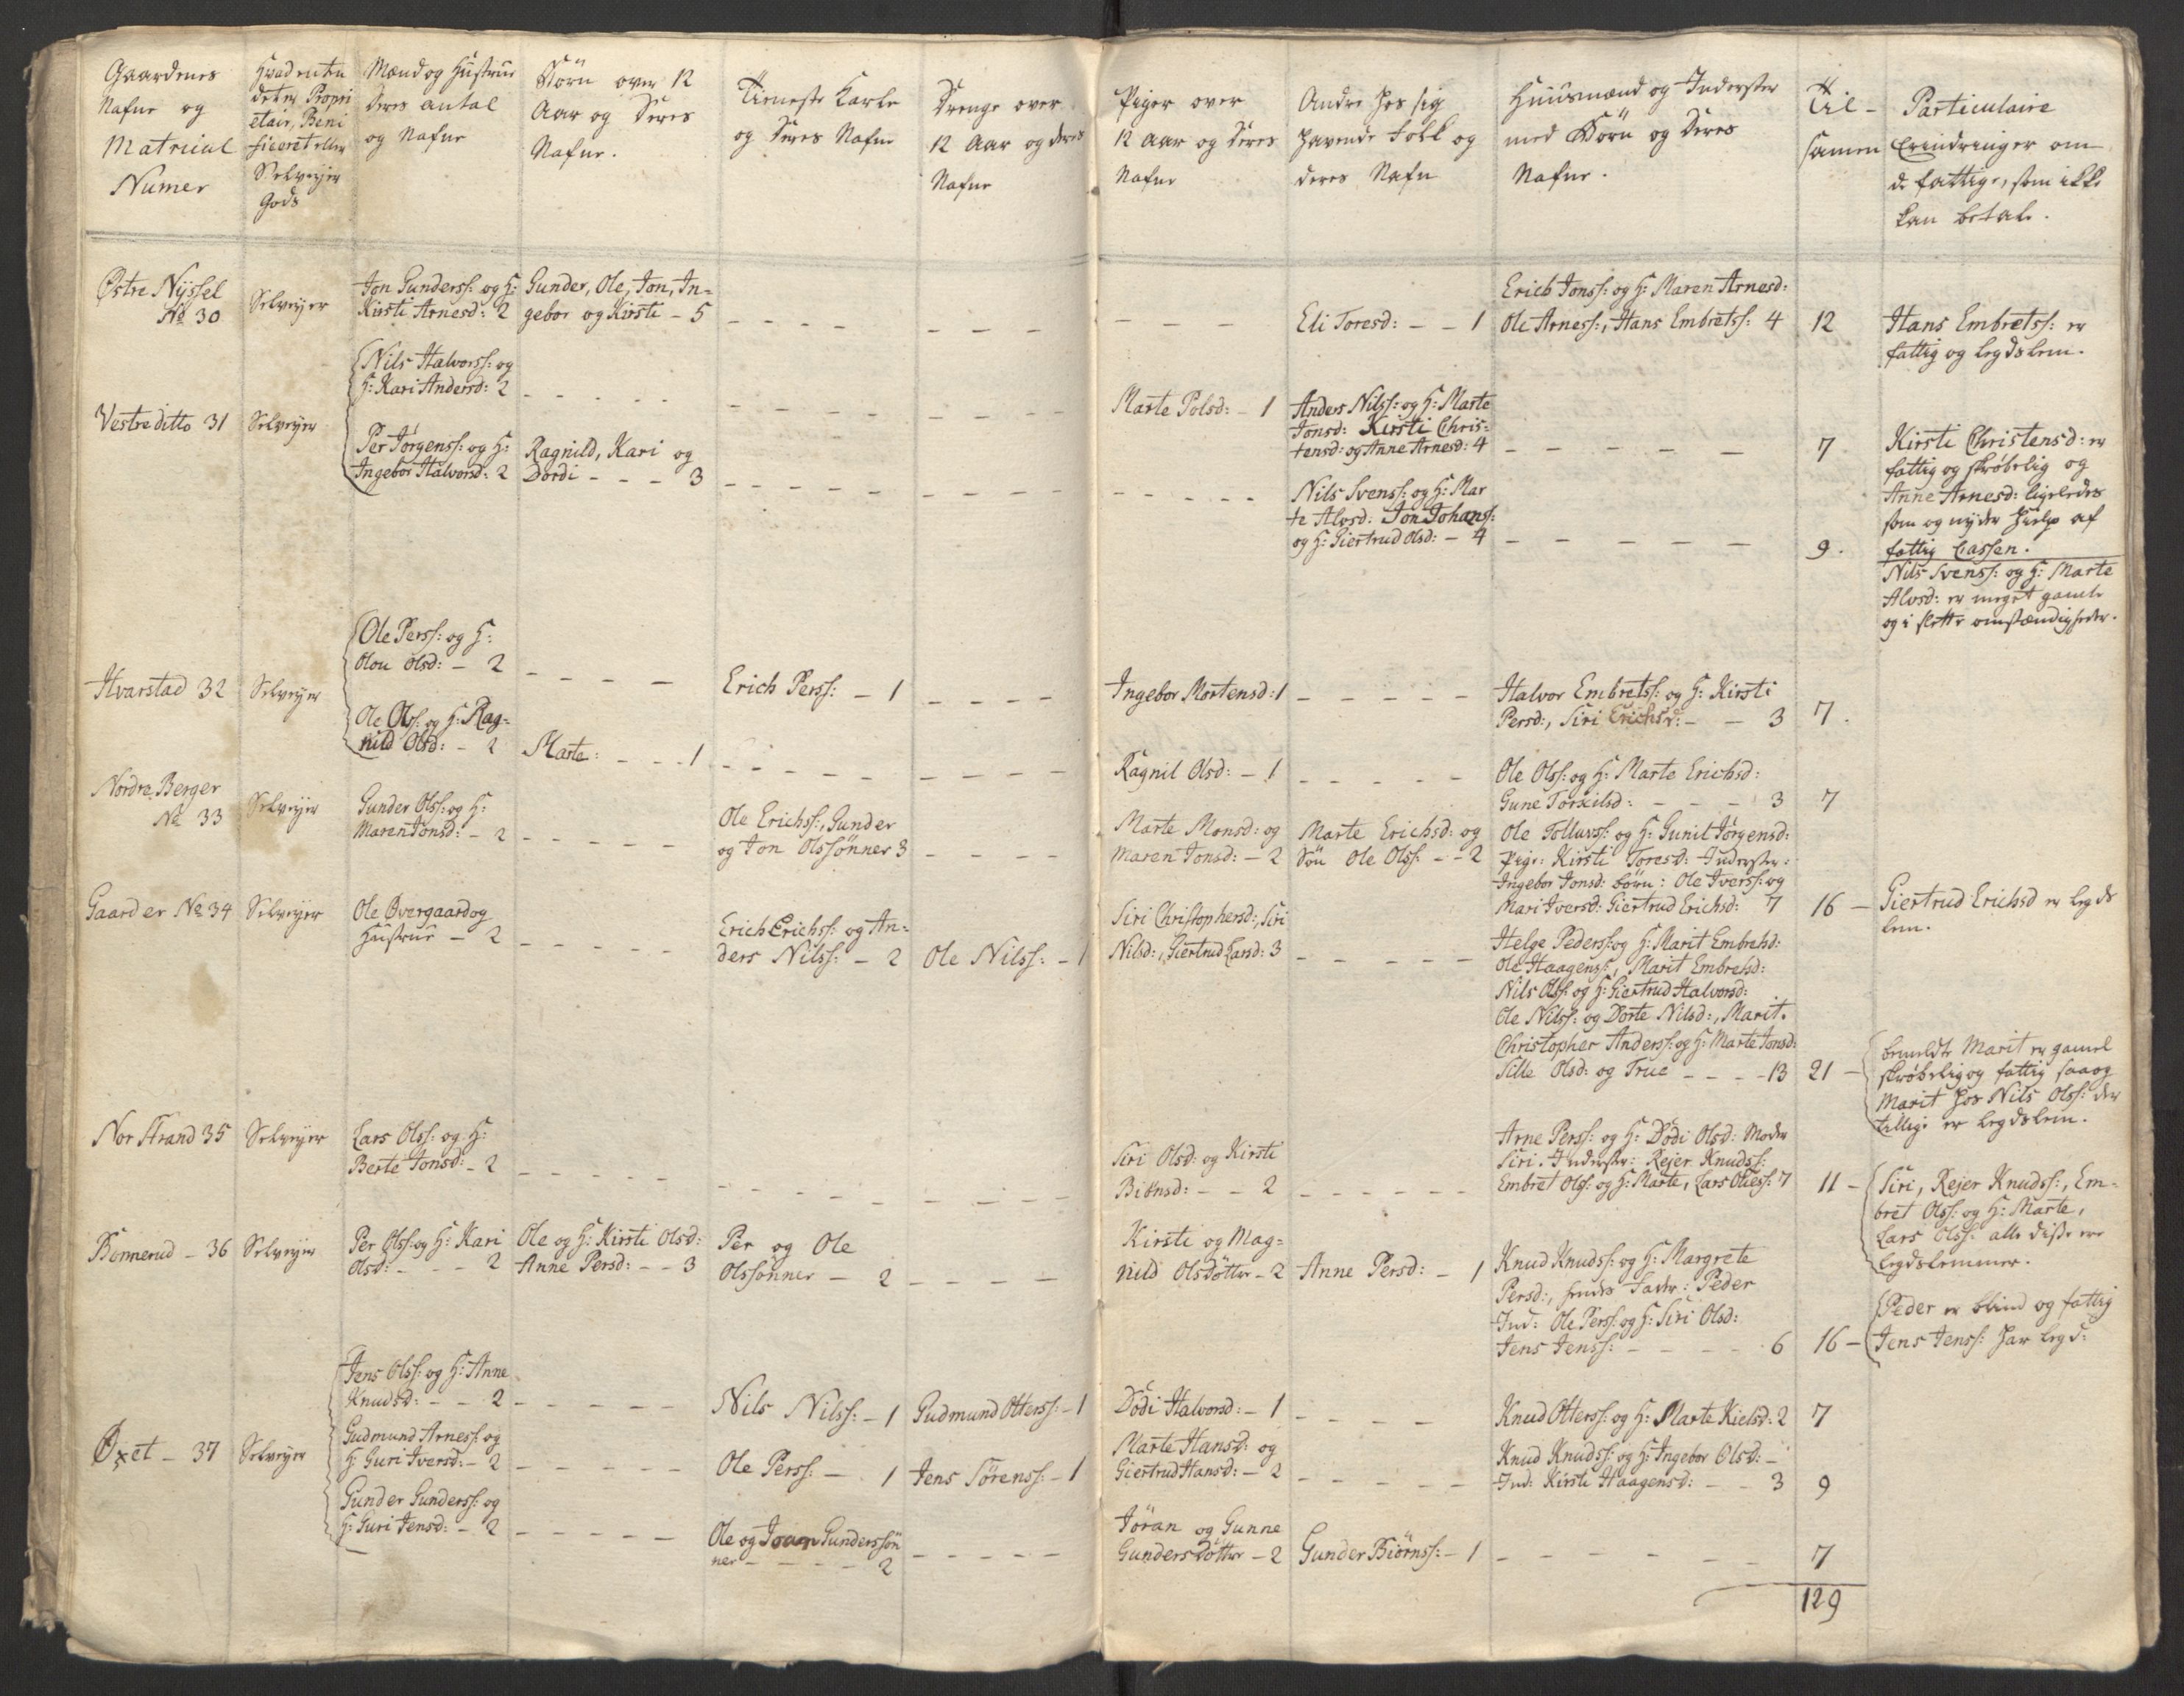 Gaardenes
Nafne og
Matricul
Numer
Hvad enten
det er Propri
etair, Beni
ficeret eller
Selveyer
Gods
Mænd og Hustrue
deres antal
og Nafne
Börn over 12
Aar og Deres
Nafne.
Tieneste Karle
og Deres Nafne
Drenge over
12 Aar og deres
Nafne
Piger over
12 Aar og Deres
Nafne
Andre hos sig
havende Folk og
deres Nafn
Huusmænd og Inderster
med Börn og Deres
Nafne.
Til-
samen
Particulaire
Erindringer om
de fattige, som ikke
kan betale.
Østre Nyssel
No 30
Selveyer
Jon Gunderss: og H:
Kirsti Arnesd: 2
Gunder, Ole, Jon, In-
gebor og Kirsti - 5
Eli Toresd: - - 1
Erich Jonss: og H: Maren Arnesd:
Ole Arness:, Hans Embretss: 4
12
Hans Embretss: er
fattig og legdslem.
Vestre ditto 31
Selveyer
Nils Halvorss: og
H: Kari Andersd: 2
Marte Polsd: - 1
Anders Nilss: og H: Marte
Jonsd: Kirsti Chris-
tensd: og Anne Arnesd: 4
7
Kirsti Christensd: er
fattig og skröbelig og
Anne Arnesd: ligeledes
som og nyder hielp af
fattig Cassen.
Per Jörgenss: og H:
Ingebor Halvorsd: 2
Ragnild, Kari og
Dordi - - - 3
Nils Svenss: og H: Mar
te Alvsd: Jon Johans:
og H: Giertrud Olsd: - 4
9.
Nils Svenss: og H: Marte
Alvsd: er meget gamle
og i slette omstændigheder.
Hvarstad 32
Selveyer
Ole Perss: og H:
Olou Olsd: - 2
Erich Perss: - 1
Ingebor Mortensd: 1
Halvor Embretss: og H: Kirsti
Persd:, Siri Erichsd: - - 3
7.
Ole Olss: og H: Rag-
nild Olsd: - 2
Marte: - - - 1
Ragnil Olsd: - 1
Ole Olss: og H: Marte Erichsd:
Gune Torkilsd: - - - 3
7
Nordre Berger
No 33
Selveyer
Gunder Olss: og H:
Maren Jonsd: - 2
Ole Erichss:, Gunder
og Jon Olssönner 3
Marte Monsd: og
Maren Jonsd: - 2
Marte Erichsd: og
Sön Ole Olss: - - 2
Ole Tolluvss: og H: Gunil Jörgensd:
Pige: Kirsti Toresd: Inderster:
Ingebor Jonsd: börn: Ole Iverss: og
Mari Iversd: Giertrud Erichsd: 7
16 -
Giertrud Erichsd er legds
lem.
Gaarder No 34
Selveyer
Ole Overgaard og
Hustrue - 2
Erich Erichss: og An-
ders Nilss: - 2
Ole Nilss: - 1
Siri Christophersd:, Siri
Nilsd:, Giertrud Larsd: 3
Helge Pederss: og H: Marit Embretsd:
Ole Haagenss:, Marit Embretsd:
Nils Olss: og H: Giertrud Halvorsd:
Ole Nilss: og Dorte Nilsd:, Marit.
Christopher Anderss: og H: Marte Jonsd:
Sille Olsd: og True - - - - 13
21 -
bemeldte Marit er gamel
skröbelig og fattig saa og
Marit hos Nils Olss: der
tillige er legdslem.
Nor Strand 35
Selveyer
Lars Olss: og H:
Berte Jonsd: - 2
Siri Olsd: og Kirsti
Biönsd: - - 2
Arne Perss: og H: Dödi Olsd: Moder
Siri. Inderster: Rejer Knudss:
Embret Olss: og H: Marte, Lars Oless: 7
11 -
Siri, Rejer Knudss:, Em-
bret Olss: og H: Marte,
Lars Olss: alle disse ere
legdslemmer.
Bonnerud - 36
Selveyer
Per Olss: og H: Kari
Olsd: - - - 2
Ole og H: Kirsti Olsd:
Anne Persd: - - 3
Per og Ole
Olssönner - 2
Kirsti og Mag-
nild Olsdötter - 2
Anne Persd: - 1
Knud Knudss: og H: Margrete
Persd:, hendes Fader: Peder
Ind: Ole Perss: og H: Siri Olsd:
Jens Jenss: - - - - 6
16 -
Peder er blind og fattig
Jens Jenss: har legd:
Øxet - 37
Selveyer
Jens Olss: og H: Anne
Knudsd: - - 2
Nils Nilss: - 1
Gudmund Otterss: - 1
Dödi Halvorsd: - 1
Knud Otterss: og H: Marte Kielsd: 2
7
Gudmund Arness: og
H: Guri Iversd: - 2
Ole Perss: - 1
Jens Sörenss: - 1
Marte Hansd: og
Giertrud Hansd: - 2
Knud Knudss: og H: Ingebor Olsd: -
Ind: Kirsti Haagensd: - - 3
9
Gunder Gunderss: og
H: Guri Jensd: - 2
Ole og Joan Gunderssön
ner - - - - 2
Jöran og Gunne
Gundersdötter - 2
Gunder Biörnss: - 1
7
129